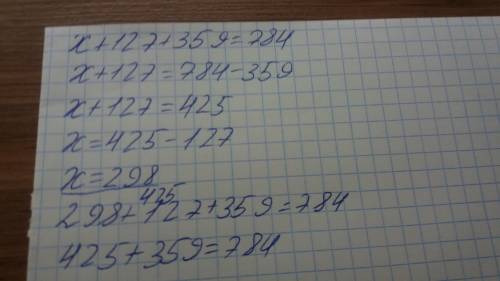 x+127+359=784
x+127=784-359
x+127=425
x=425-127
x=298
425
298+127+359=784
425+359=784